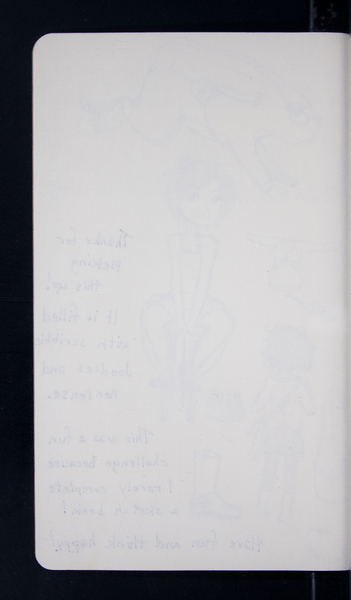 Thanks for
picking
this up!
It is filled
with scribbles
doodles and
nonsense.
This was a fun
challenge because
I rarely complete
a sketch book!
Have fun and think happy!